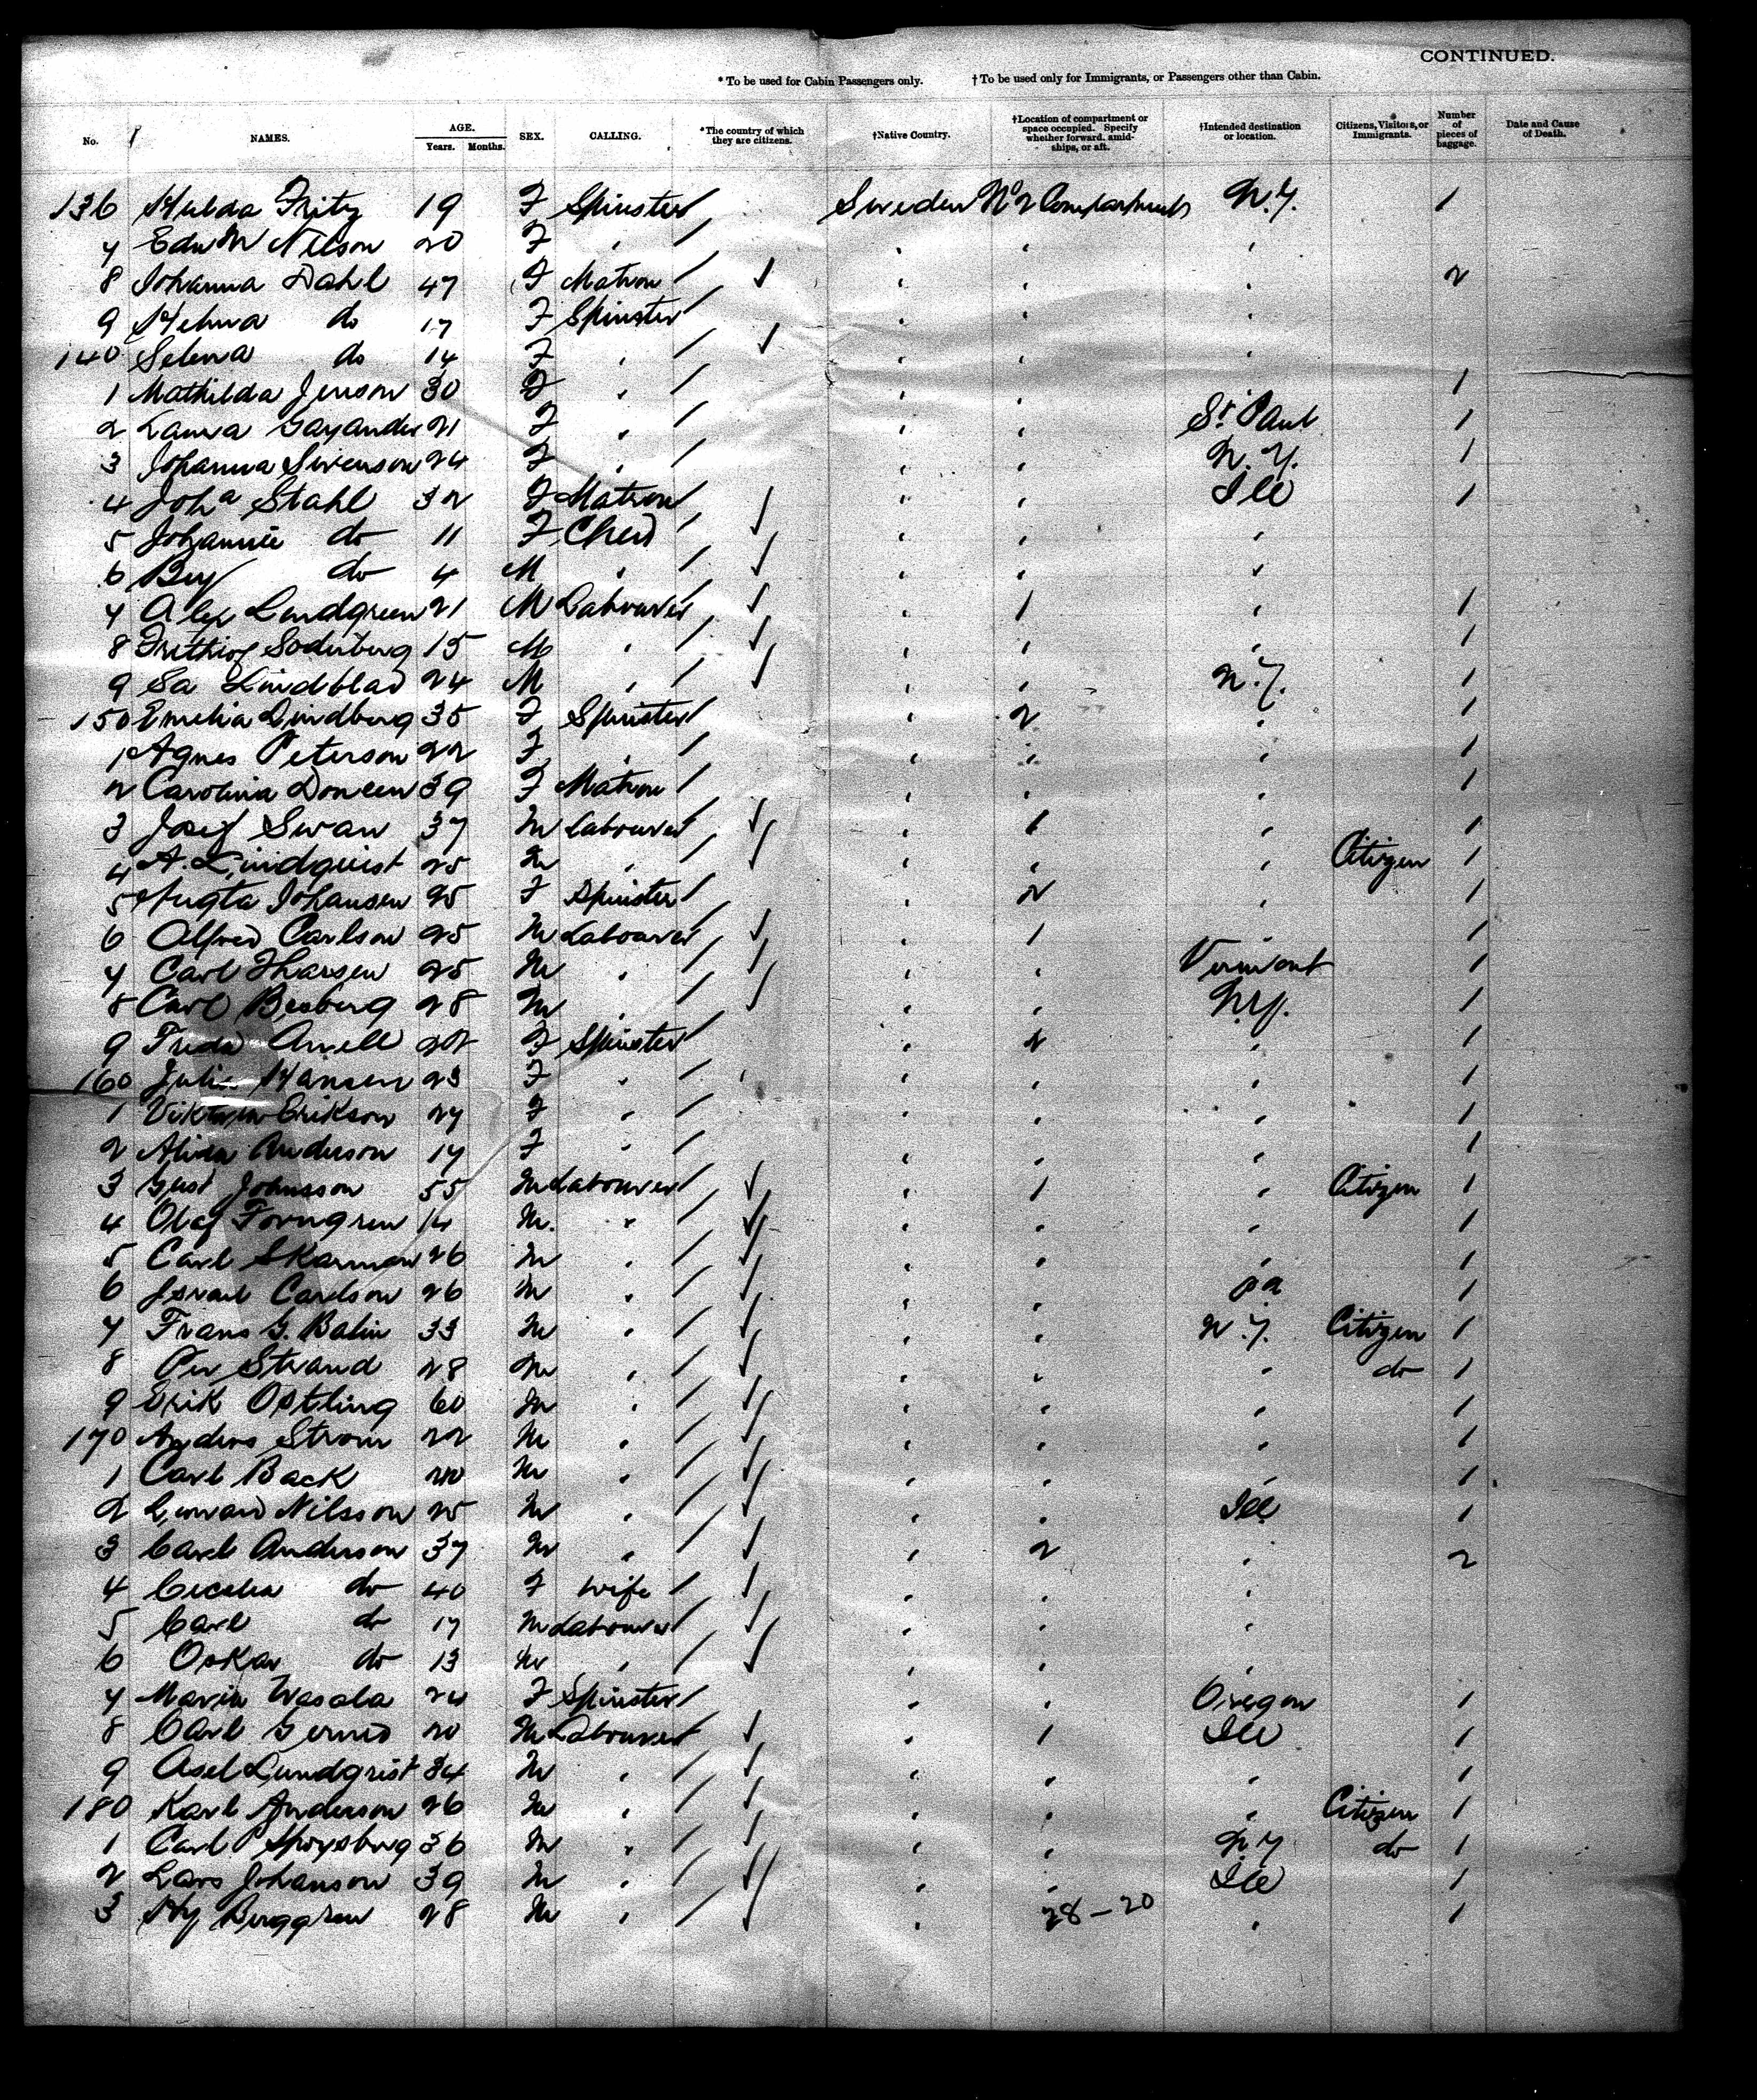 CONTINUED.
* To be used for Cabin Passengers only. † To be used only for Immigrants, or Passengers other than Cabin.
No. NAMES. AGE. Years. Months. SEX. CALLING. *The country of which they are citizens. †Native Country. †Location of compartment or space occupied. Specify whether forward, amidships, or aft. †Intended destination or location. Citizens, Visitors, or Immigrants. Number of pieces of baggage. Date and Cause of Death.
136 Hulda Fritz 19 F Spinster / Sweden No 2 Compartment N.Y. 1
7 Nelson 20 F " / " " "
8 Johanna Dahl 47 F Matron / ✓ " " " 2
9 Helma do 17 F Spinster / " " "
140 Selma do 14 F " / ✓ " " "
1 Mathilda Jenson 30 F " / " " 1
2 Laura 21 F " / " " St Paul 1
3 Johanna Swenson 24 F " / " " N.Y. 1
4 Joha Stahl 32 F Matron / ✓ " " Ill 1
5 Johannie do 11 F Child / ✓ " " "
6 do 4 M " / ✓ " " "
7 Alex Lindgreen 21 M Labourer / ✓ " 1 " 1
8 Frithiof Soderberg 15 M " / ✓ " " " 1
9 Lindblad 24 M " / ✓ " " N.Y. 1
150 Emelia Lindberg 35 F Spinster / " 2 " 1
1 Agnes Peterson 22 F " / " " " 1
2 Carolina 39 F Matron / " " " 1
3 Josef Swan 37 M Labourer / ✓ " 1 " 1
4 A. Lindquist 25 M " / ✓ " " " Citizen 1
5 Augta Johansen 25 F Spinster / " 2 " 1
6 Alfred Carlson 25 M Labourer / ✓ " 1 " 1
7 Carl 25 M " / ✓ " " Vermont 1
8 Carl 28 M " / ✓ " " N.Y. 1
9 Frida 22 F Spinster / " 2 " 1
160 Julia Hansen 23 F " / " " " 1
1 Erikson 27 F " / " " " 1
2 Anderson 17 F " / " " " 1
3 Gust Johnsson 55 M Labourer / ✓ " 1 " Citizen 1
4 Olaf Forngren 14 M. " / ✓ " " " 1
5 Carl Skarman 26 M " / ✓ " " " 1
6 Israel Carlson 26 M " / ✓ " " Pa 1
7 Frans G. Balin 33 M " / ✓ " " N.Y. Citizen 1
8 Per Strand 28 M " / ✓ " " " do 1
9 Erik Ostling 60 M " / ✓ " " " 1
170 Anders Strom 22 M " / ✓ " " " 1
1 Carl Back 20 M " / ✓ " " " 1
2 Nilsson 25 M " / ✓ " " Ill 1
3 Carl Anderson 37 M " / ✓ " 2 " 2
4 Cecelia do 40 F Wife / ✓ " " "
5 Carl do 17 M Labourer / ✓ " " "
6 Oskar do 13 M " / ✓ " " "
7 Maria Wasala 24 F Spinster / " " Oregon 1
8 Carl 20 M Labourer / ✓ " 1 Ill 1
9 Axel Lundqrist 34 M " / ✓ " " " 1
180 Karl Anderson 26 M " / ✓ " " " Citizen 1
1 Carl 36 M " / ✓ " " N.Y do 1
2 Lars Johanson 39 M " / ✓ " " Ill 1
3 Hy Berggren 28 M " / ✓ " 28-20 " 1